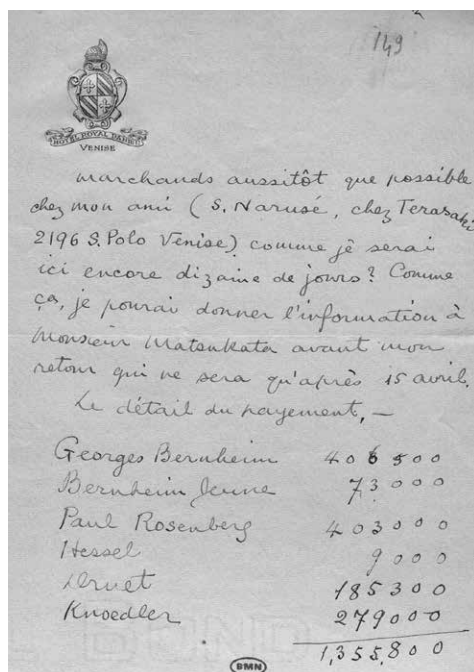 149
HOTEL ROYAL DANIELI
VENISE
marchands aussitôt que possible
chez mon ami (S. Narusé, chez Terasaki
2196 S. Polo Venise) comme je serai
ici encore dizaine de jours? Comme
ça, je pourai donner l'information à
Monsieur Matsukata avant mon
retour qui ne sera qu'après 15 avril.
Le détail du payement, —
Georges Bernheim 406500
Bernheim Jeune 73000
Paul Rosenberg 403000
Hessel 9000
Druet 185300
Knoedler 279000
1,355,800
BMN